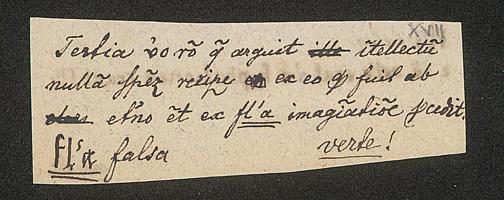 XVII
Tertia v̊o rō q̄ arguit ille ītellectū
nullā spēz recipe ex eo qđ fuit ab
et'no ēt ex fl'a imagīatiōe pcedit.
fl'a falsa verte!